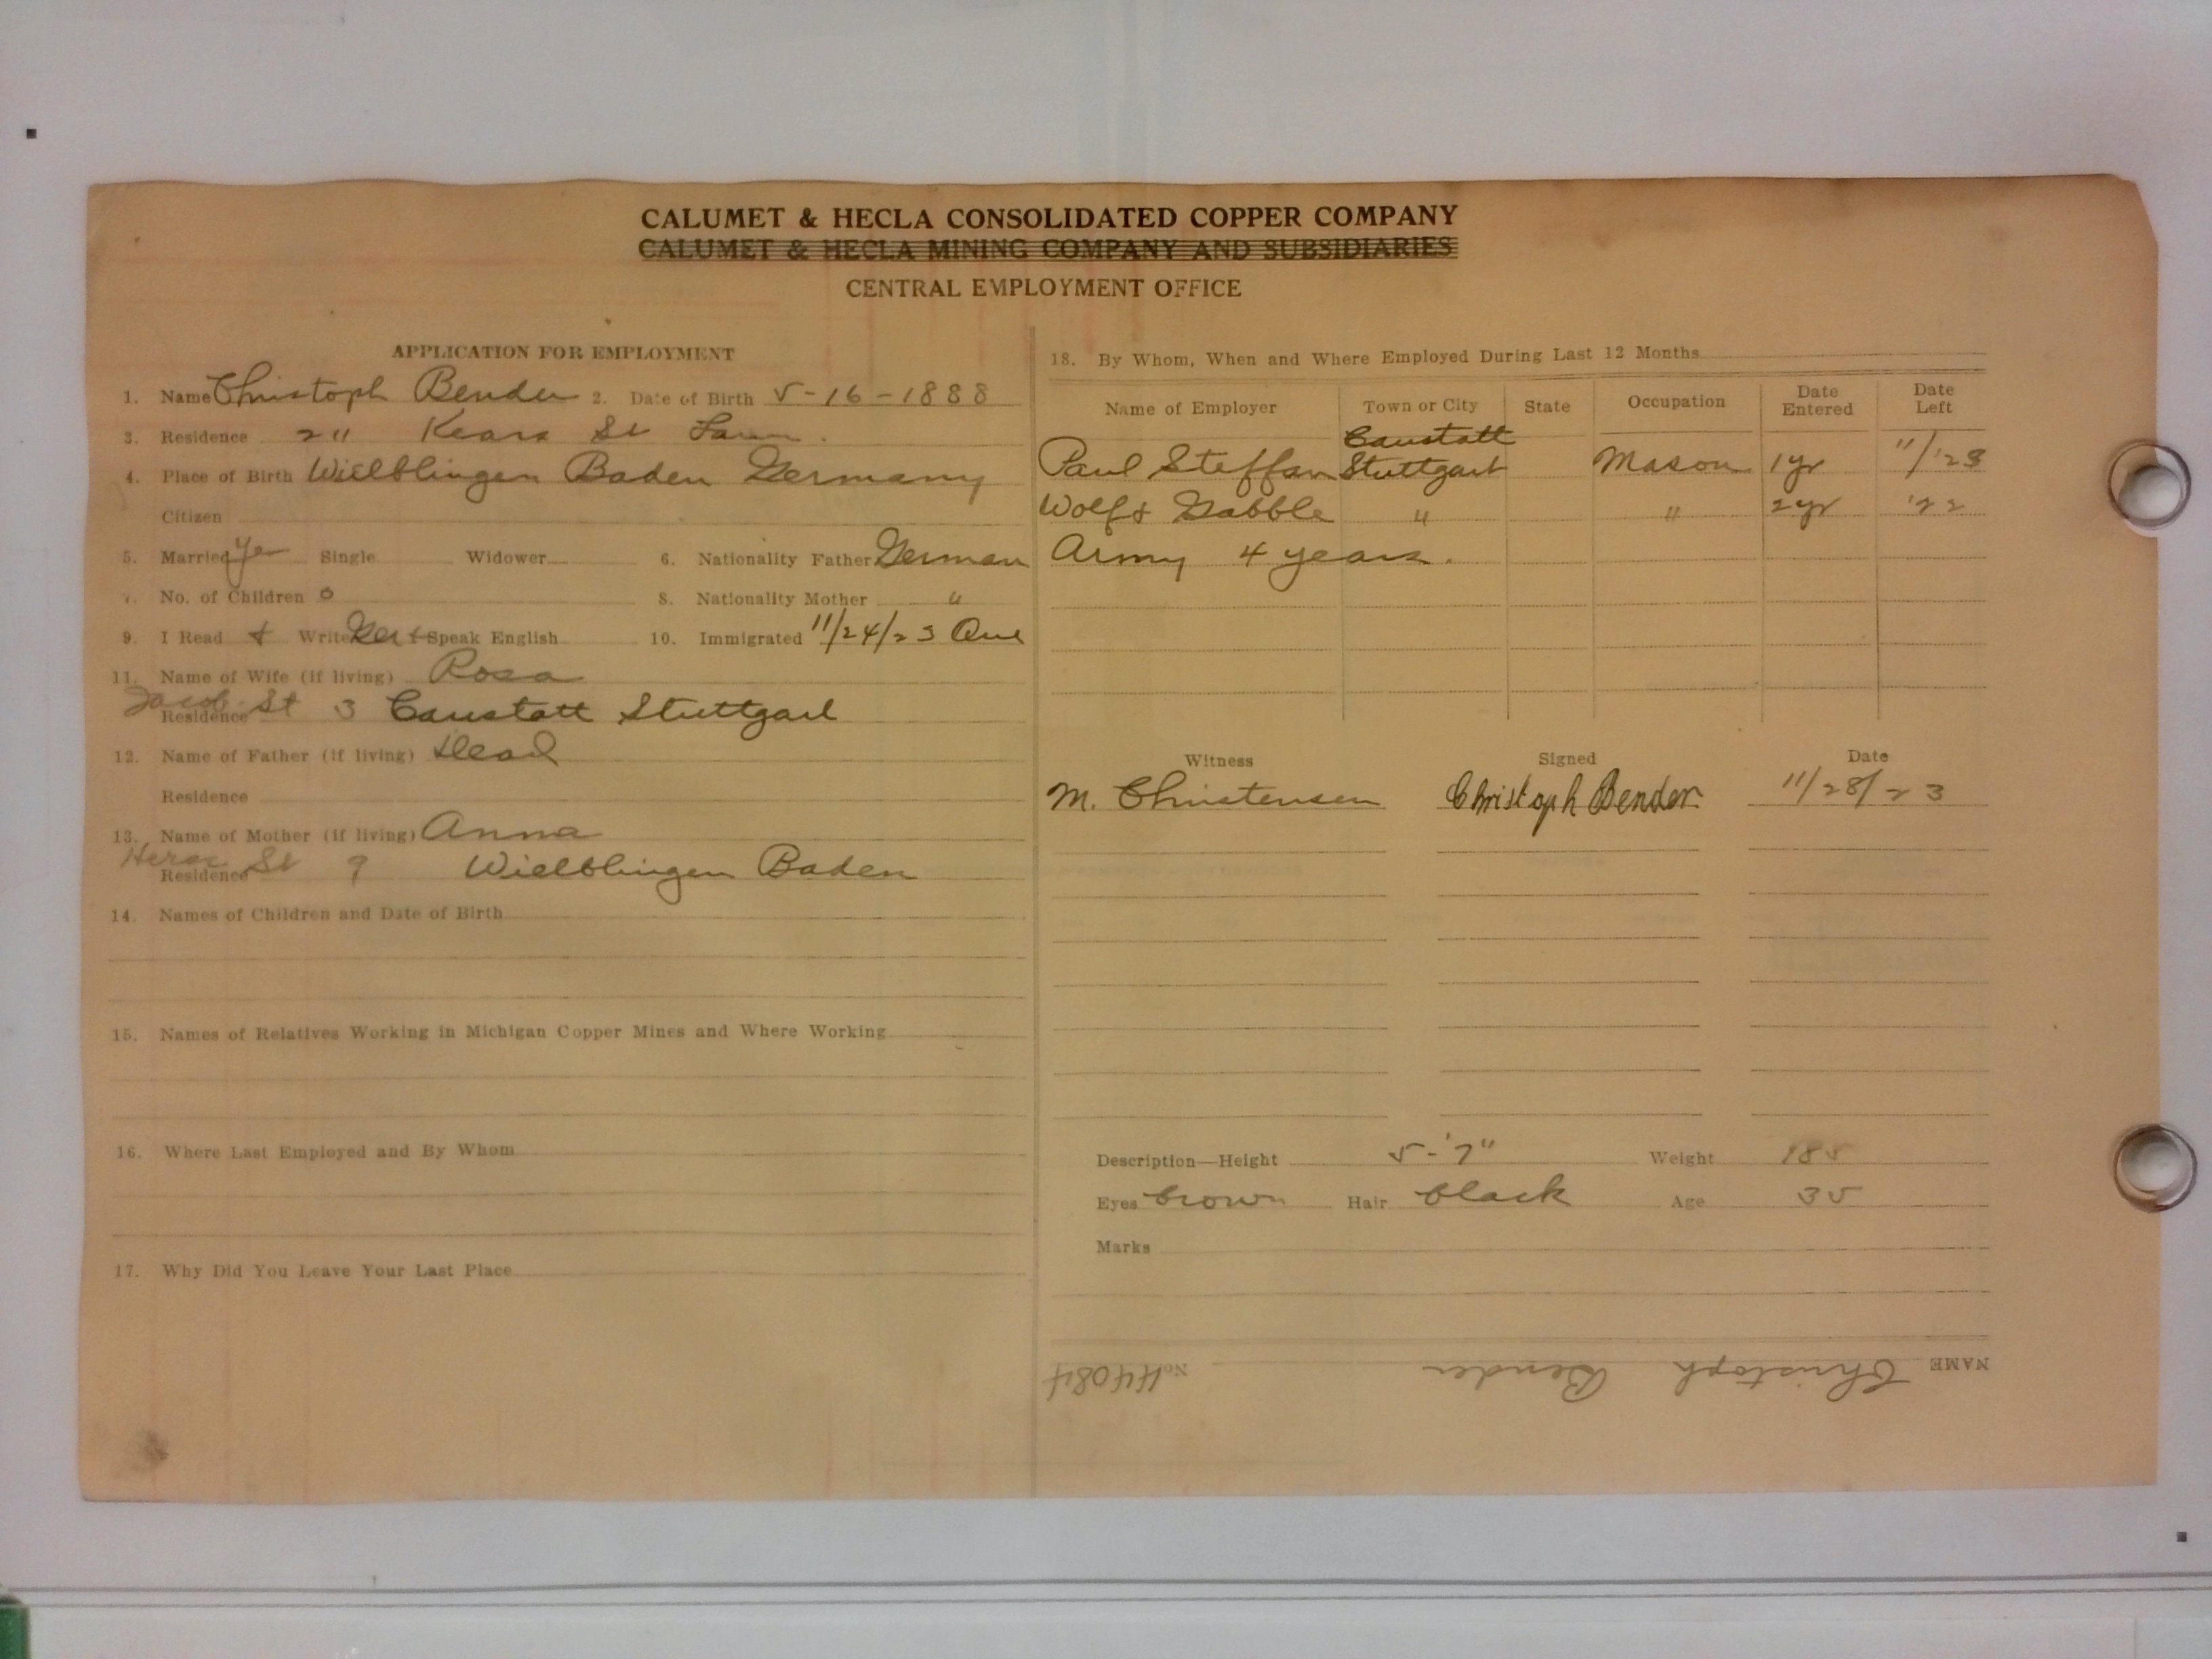 CALUMET & HECLA CONSOLIDATED COPPER COMPANY
CALUMET & HECLA MINING COMPANY AND SUBSIDIARIES
CENTRAL EMPLOYMENT OFFICE
APPLICATION FOR EMPLOYMENT
1. Name Christoph Bender 2. Date of Birth 5-16-1888
3. Residence Kears St
4. Place of Birth Wielblingen Baden Germany
Citizen
5. Married Yes Single Widower 6. Nationality Father German
7. No. of Children 0 8. Nationality Mother "
9. I Read + Write Ger + Speak English 10. Immigrated 11/24/23
11. Name of Wife (if living) Rosa
Jacob St 3 Canstatt Stuttgart
Residence
12. Name of Father (if living) Dead
Residence
13. Name of Mother (if living) Anna
Residence St 9 Wielblingen Baden
14. Names of Children and Date of Birth
15. Names of Relatives Working in Michigan Copper Mines and Where Working
16. Where Last Employed and By Whom
17. Why Did You Leave Your Last Place
18. By Whom, When and Where Employed During Last 12 Months
Name of Employer Town or City State Occupation Date Entered Date Left
Canstatt
Paul Steffan Stuttgart Mason 1yr 11/'23
Wolf & Gabble " " 2yr '22
Army 4 years.
Witness Signed Date
M. Christensen Christoph Bender 11/28/23
Description—Height 5-'7" Weight 185
Eyes brown Hair black Age 35
Marks
NAME Christoph Bender No. H4084